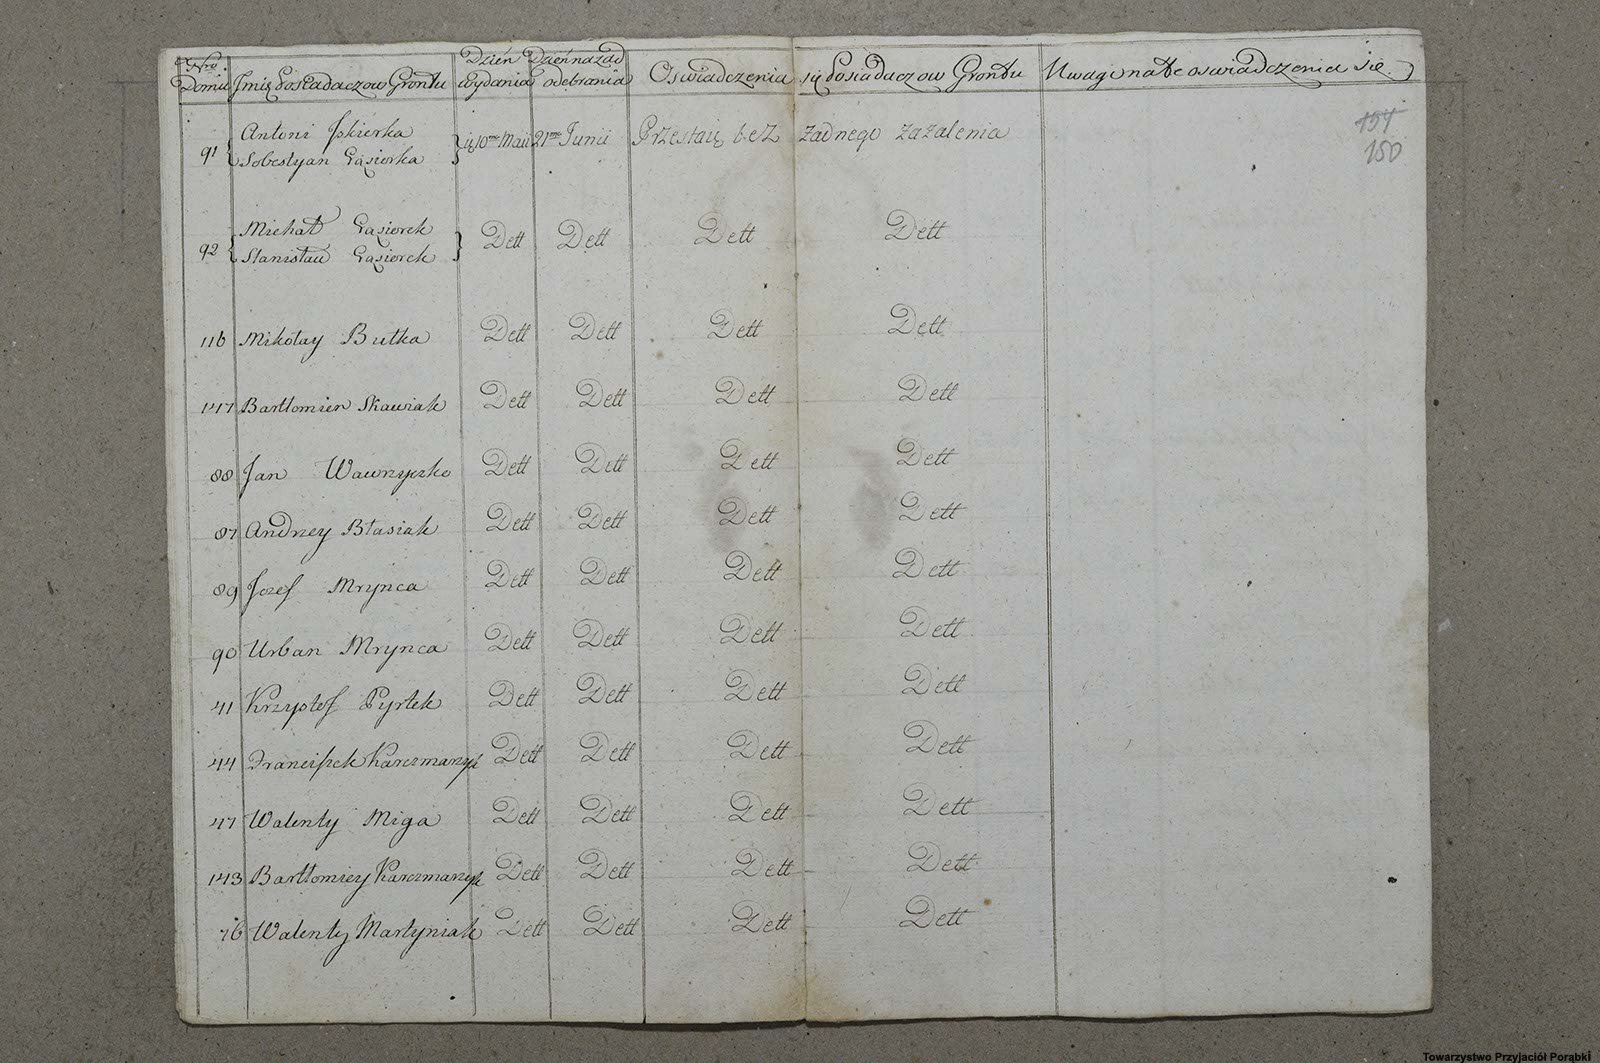 Nro Domu Imię Posiadaczow Grontu Dzień wydania Dzień nazad odebrania Oswiadczenia się Posiadaczow Grontu Uwagi na te oswiadczenia się
154
150
91 Antoni Iskierka
Sobestyan Gąsiorka 10me Maii 21me Junii Przestaię bez żadnego zażalenia
92 Michał Gąsiorek
Stanisław Gąsiorek Dett Dett Dett Dett
116 Mikołay Butka Dett Dett Dett Dett
147 Bartłomier Skawiak Dett Dett Dett Dett
88 Jan Wawrzyczko Dett Dett Dett Dett
87 Andrzey Błasiak Dett Dett Dett Dett
89 Jozef Mrynca Dett Dett Dett Dett
90 Urban Mrynca Dett Dett Dett Dett
41 Krzysztof Pyrtek Dett Dett Dett Dett
44 Franciszek Karczmarzyk Dett Dett Dett Dett
47 Walenty Miga Dett Dett Dett Dett
143 Bartłomiey Karczmarzyk Dett Dett Dett Dett
76 Walenty Martyniak Dett Dett Dett Dett
Towarzystwo Przyjaciół Porąbki